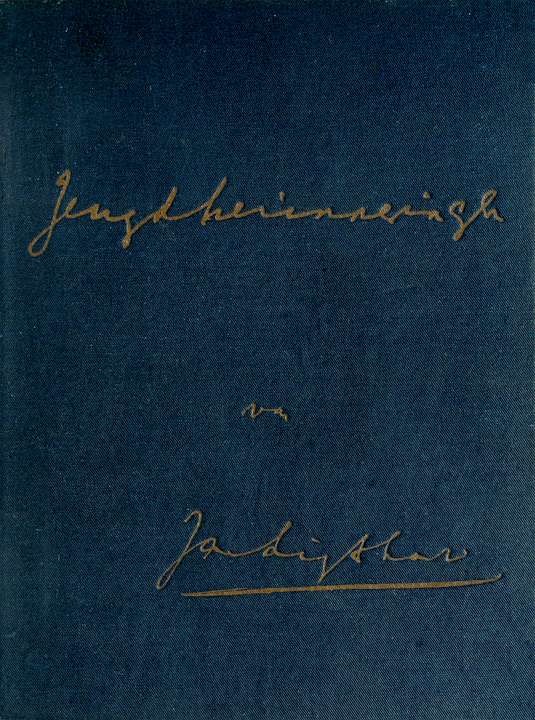 Jeugdherinneringen
van
Jan Ligthart